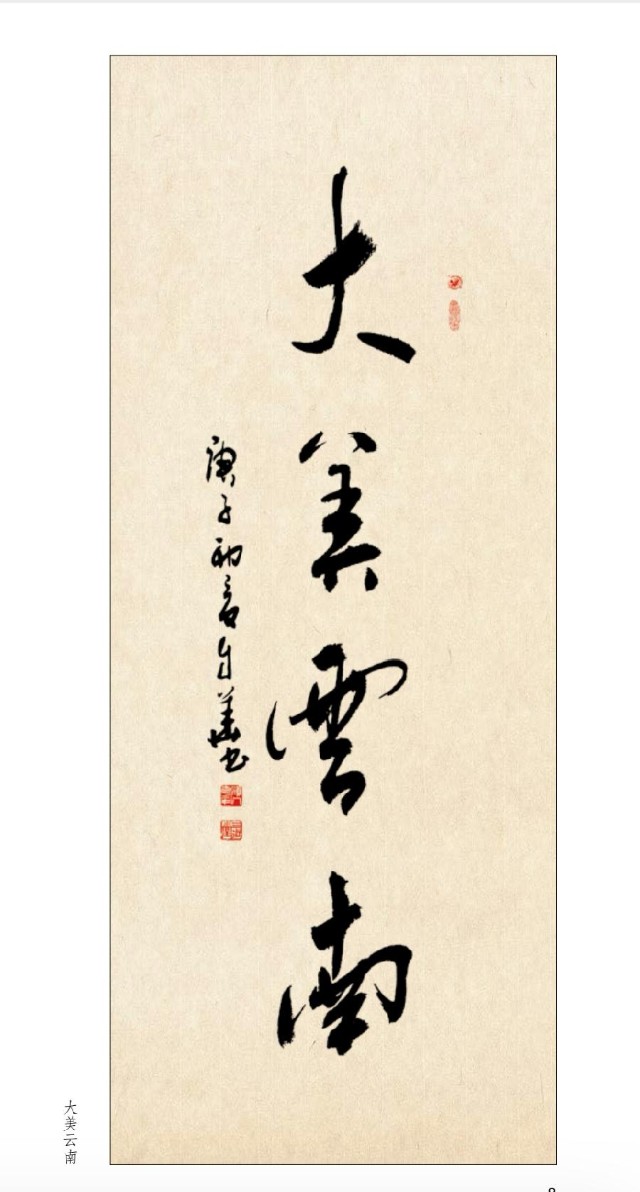 大美雲南
庚子初春自華書
大美云南